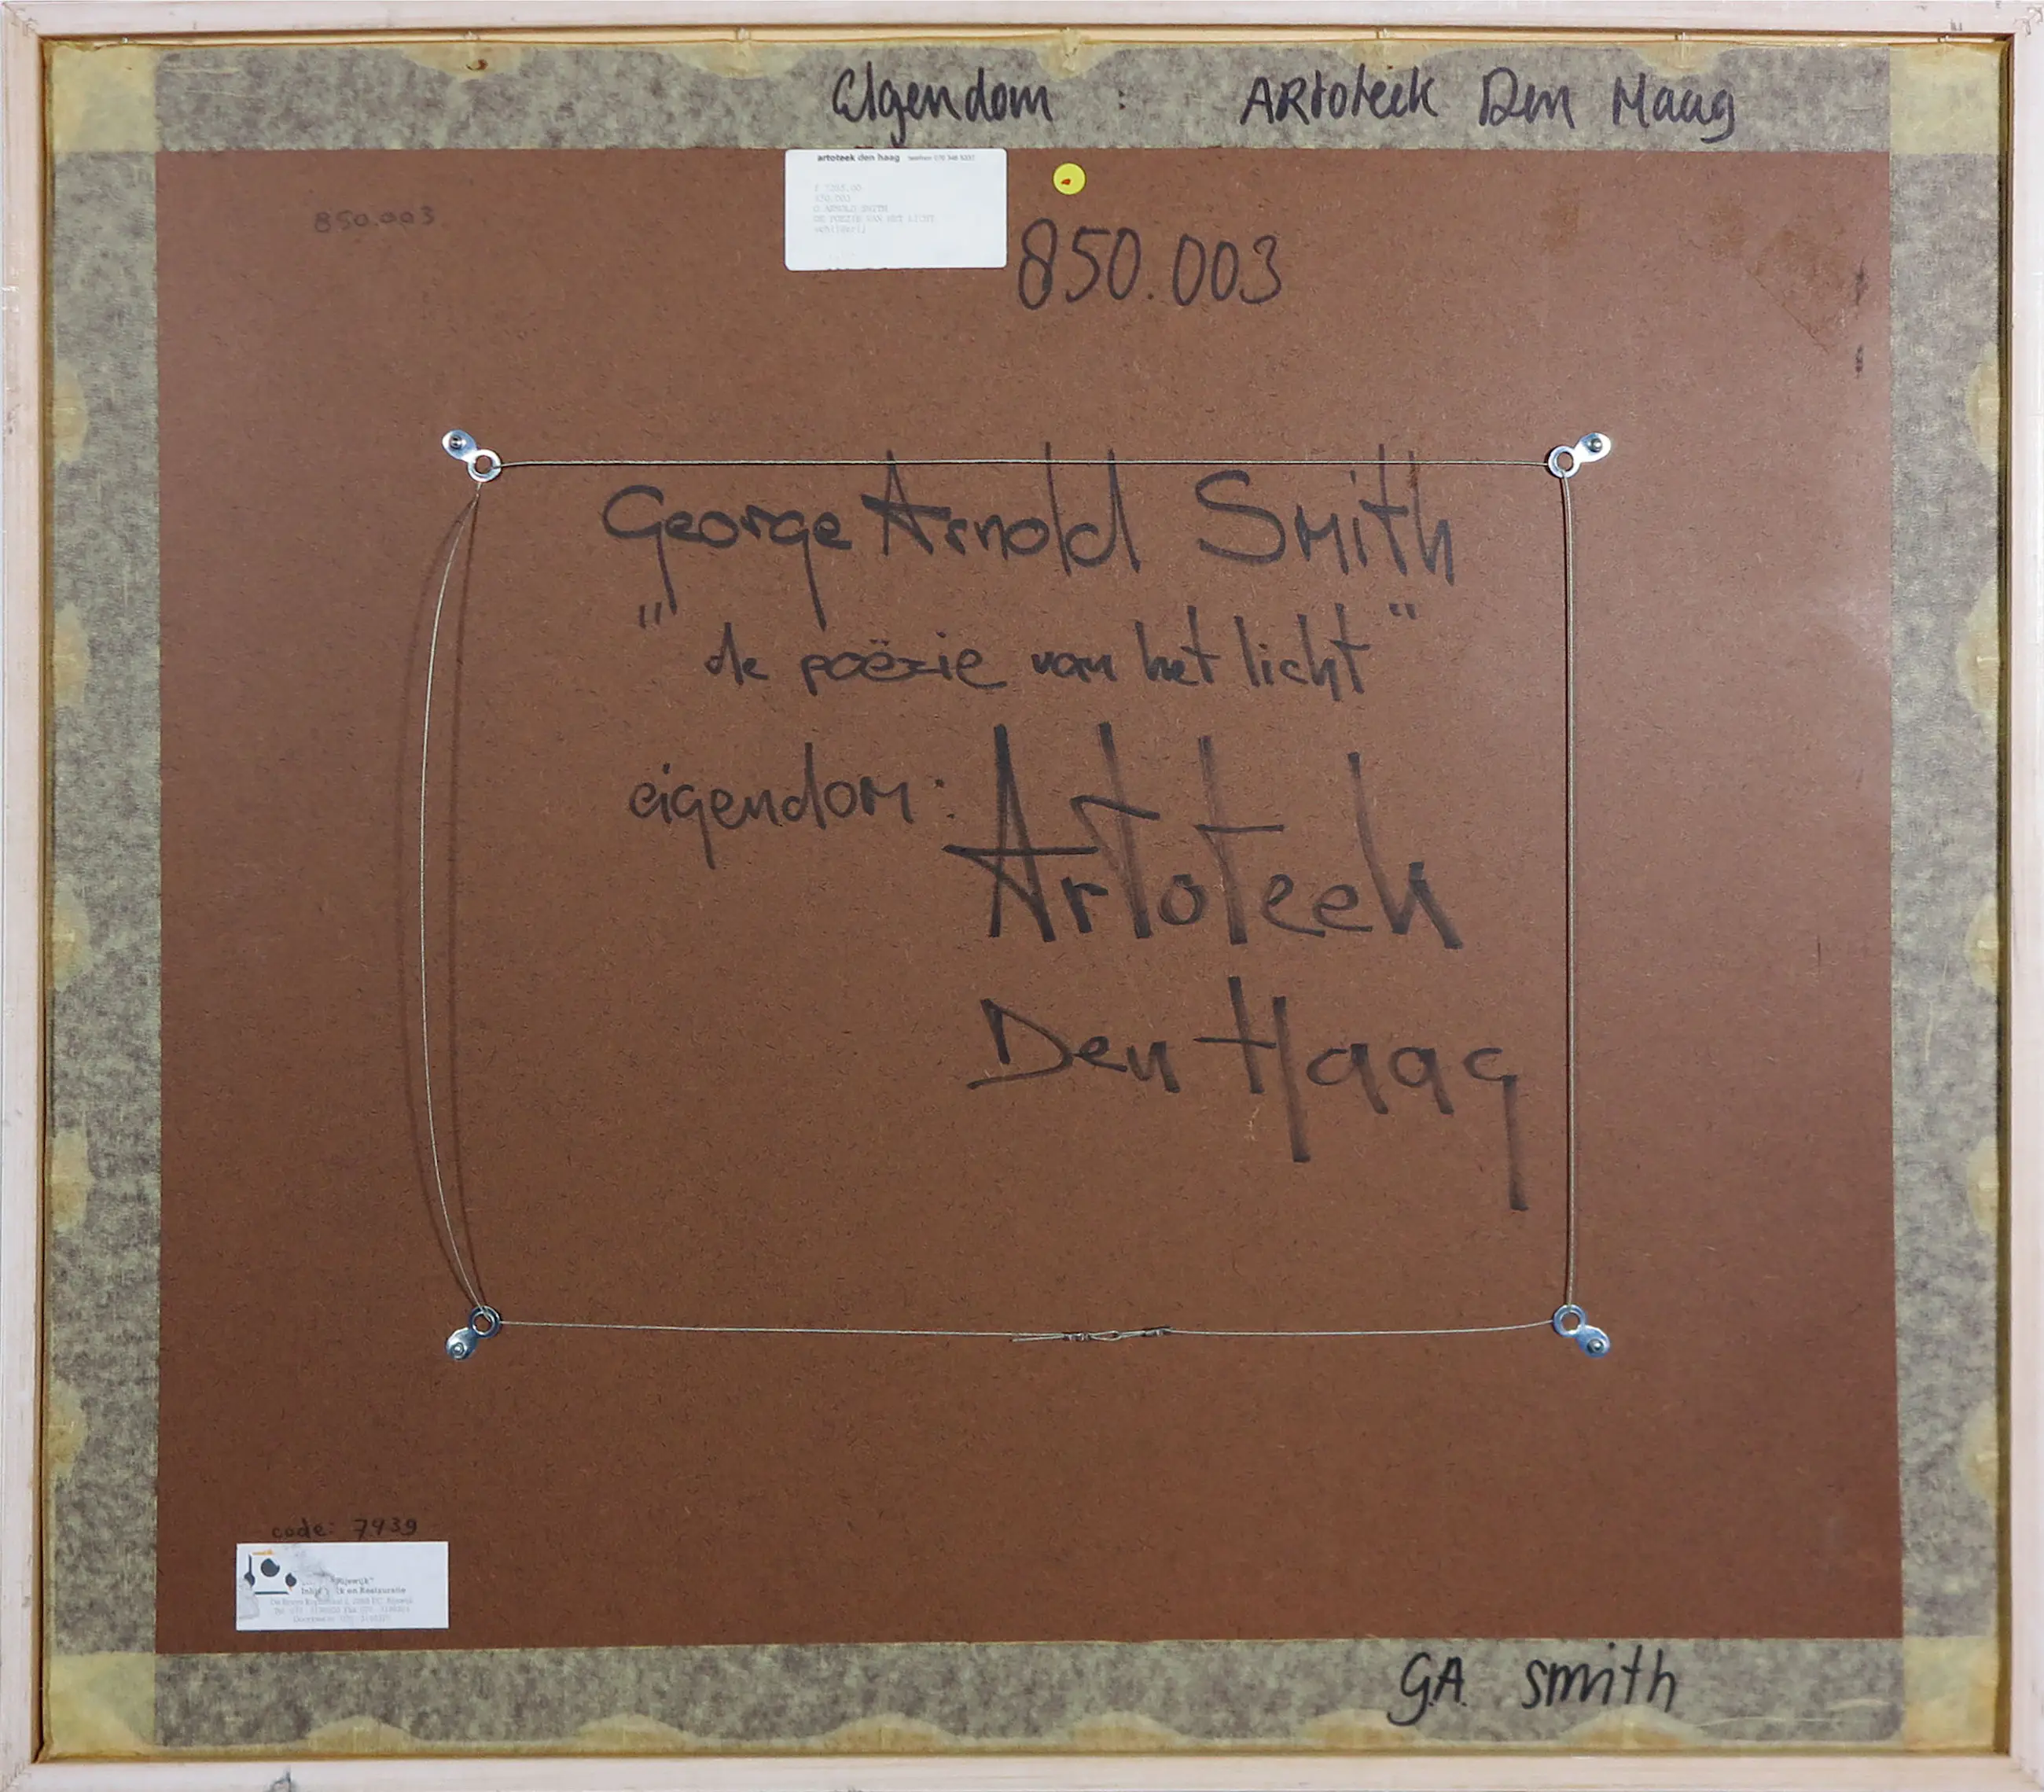 Eigendom : ARtoteek Den Haag
artoteek den haag
850.003
G ARNOLD SMITH
DE POEZIE VAN HET LICHT
850.003
George Arnold Smith
"de poëzie van het licht"
eigendom: Artoteek
Den Haag
code: 7939
"Rijswijk"
en Restauratie
G.A. Smith